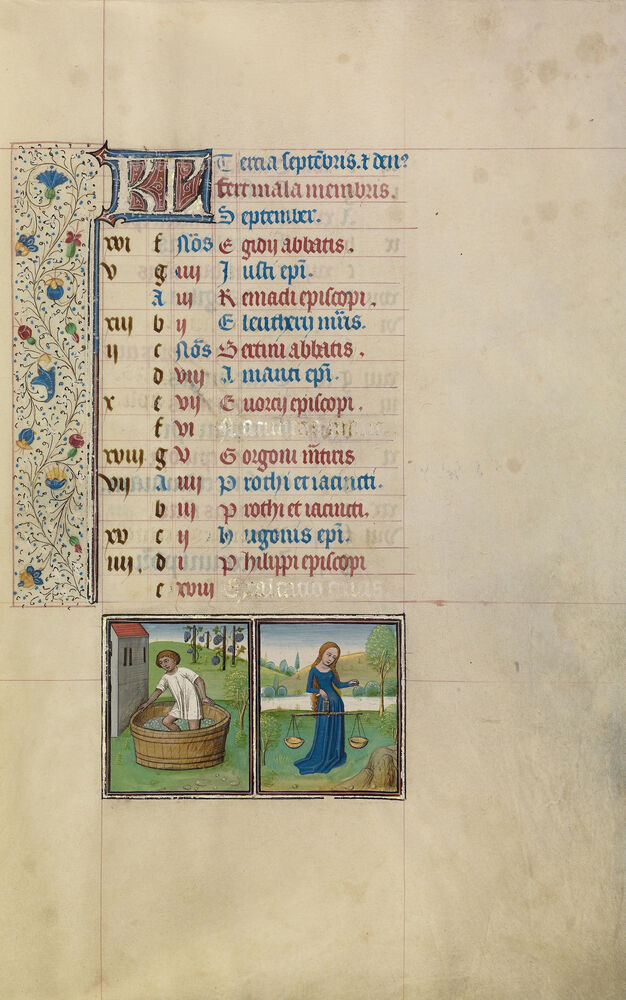 KL Tercia septēbris. ⁊ den⁹
fert mala membris.
September.
xvi f Nōs Egidij abbatis.
v g iiij Iusti epī.
A iij Remacli episcopi.
xiij b ij Eleutherij mr̄is.
ij c Nōs Bertini abbatis.
d viij Amanti epī.
x e vij Euorcij episcopi.
f vi
xviij g v Gorgonij
vij A iiij Prothi et iacincti.
b iij Prothi et iacincti.
xv c ij Hugonis epī.
iiij. d i Philippi episcopi
e xviij Exaltatio